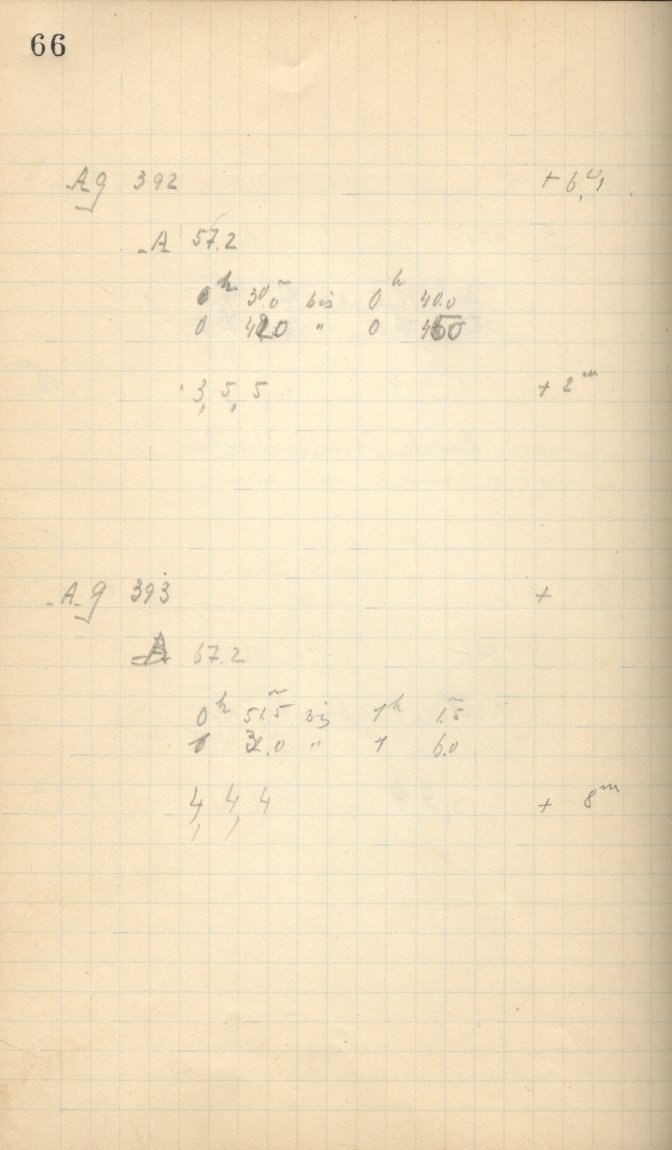 66
Ag 392
A 57.2
0h 30.0m bis 0h 40.0
0 42.0 " 0 45.0
3, 5, 5 + 2m
Ag 393 +
A 67.2
0h 51.5m bis 1h 1.5m
1 3.0 " 1 6.0
4, 4, 4 + 8m